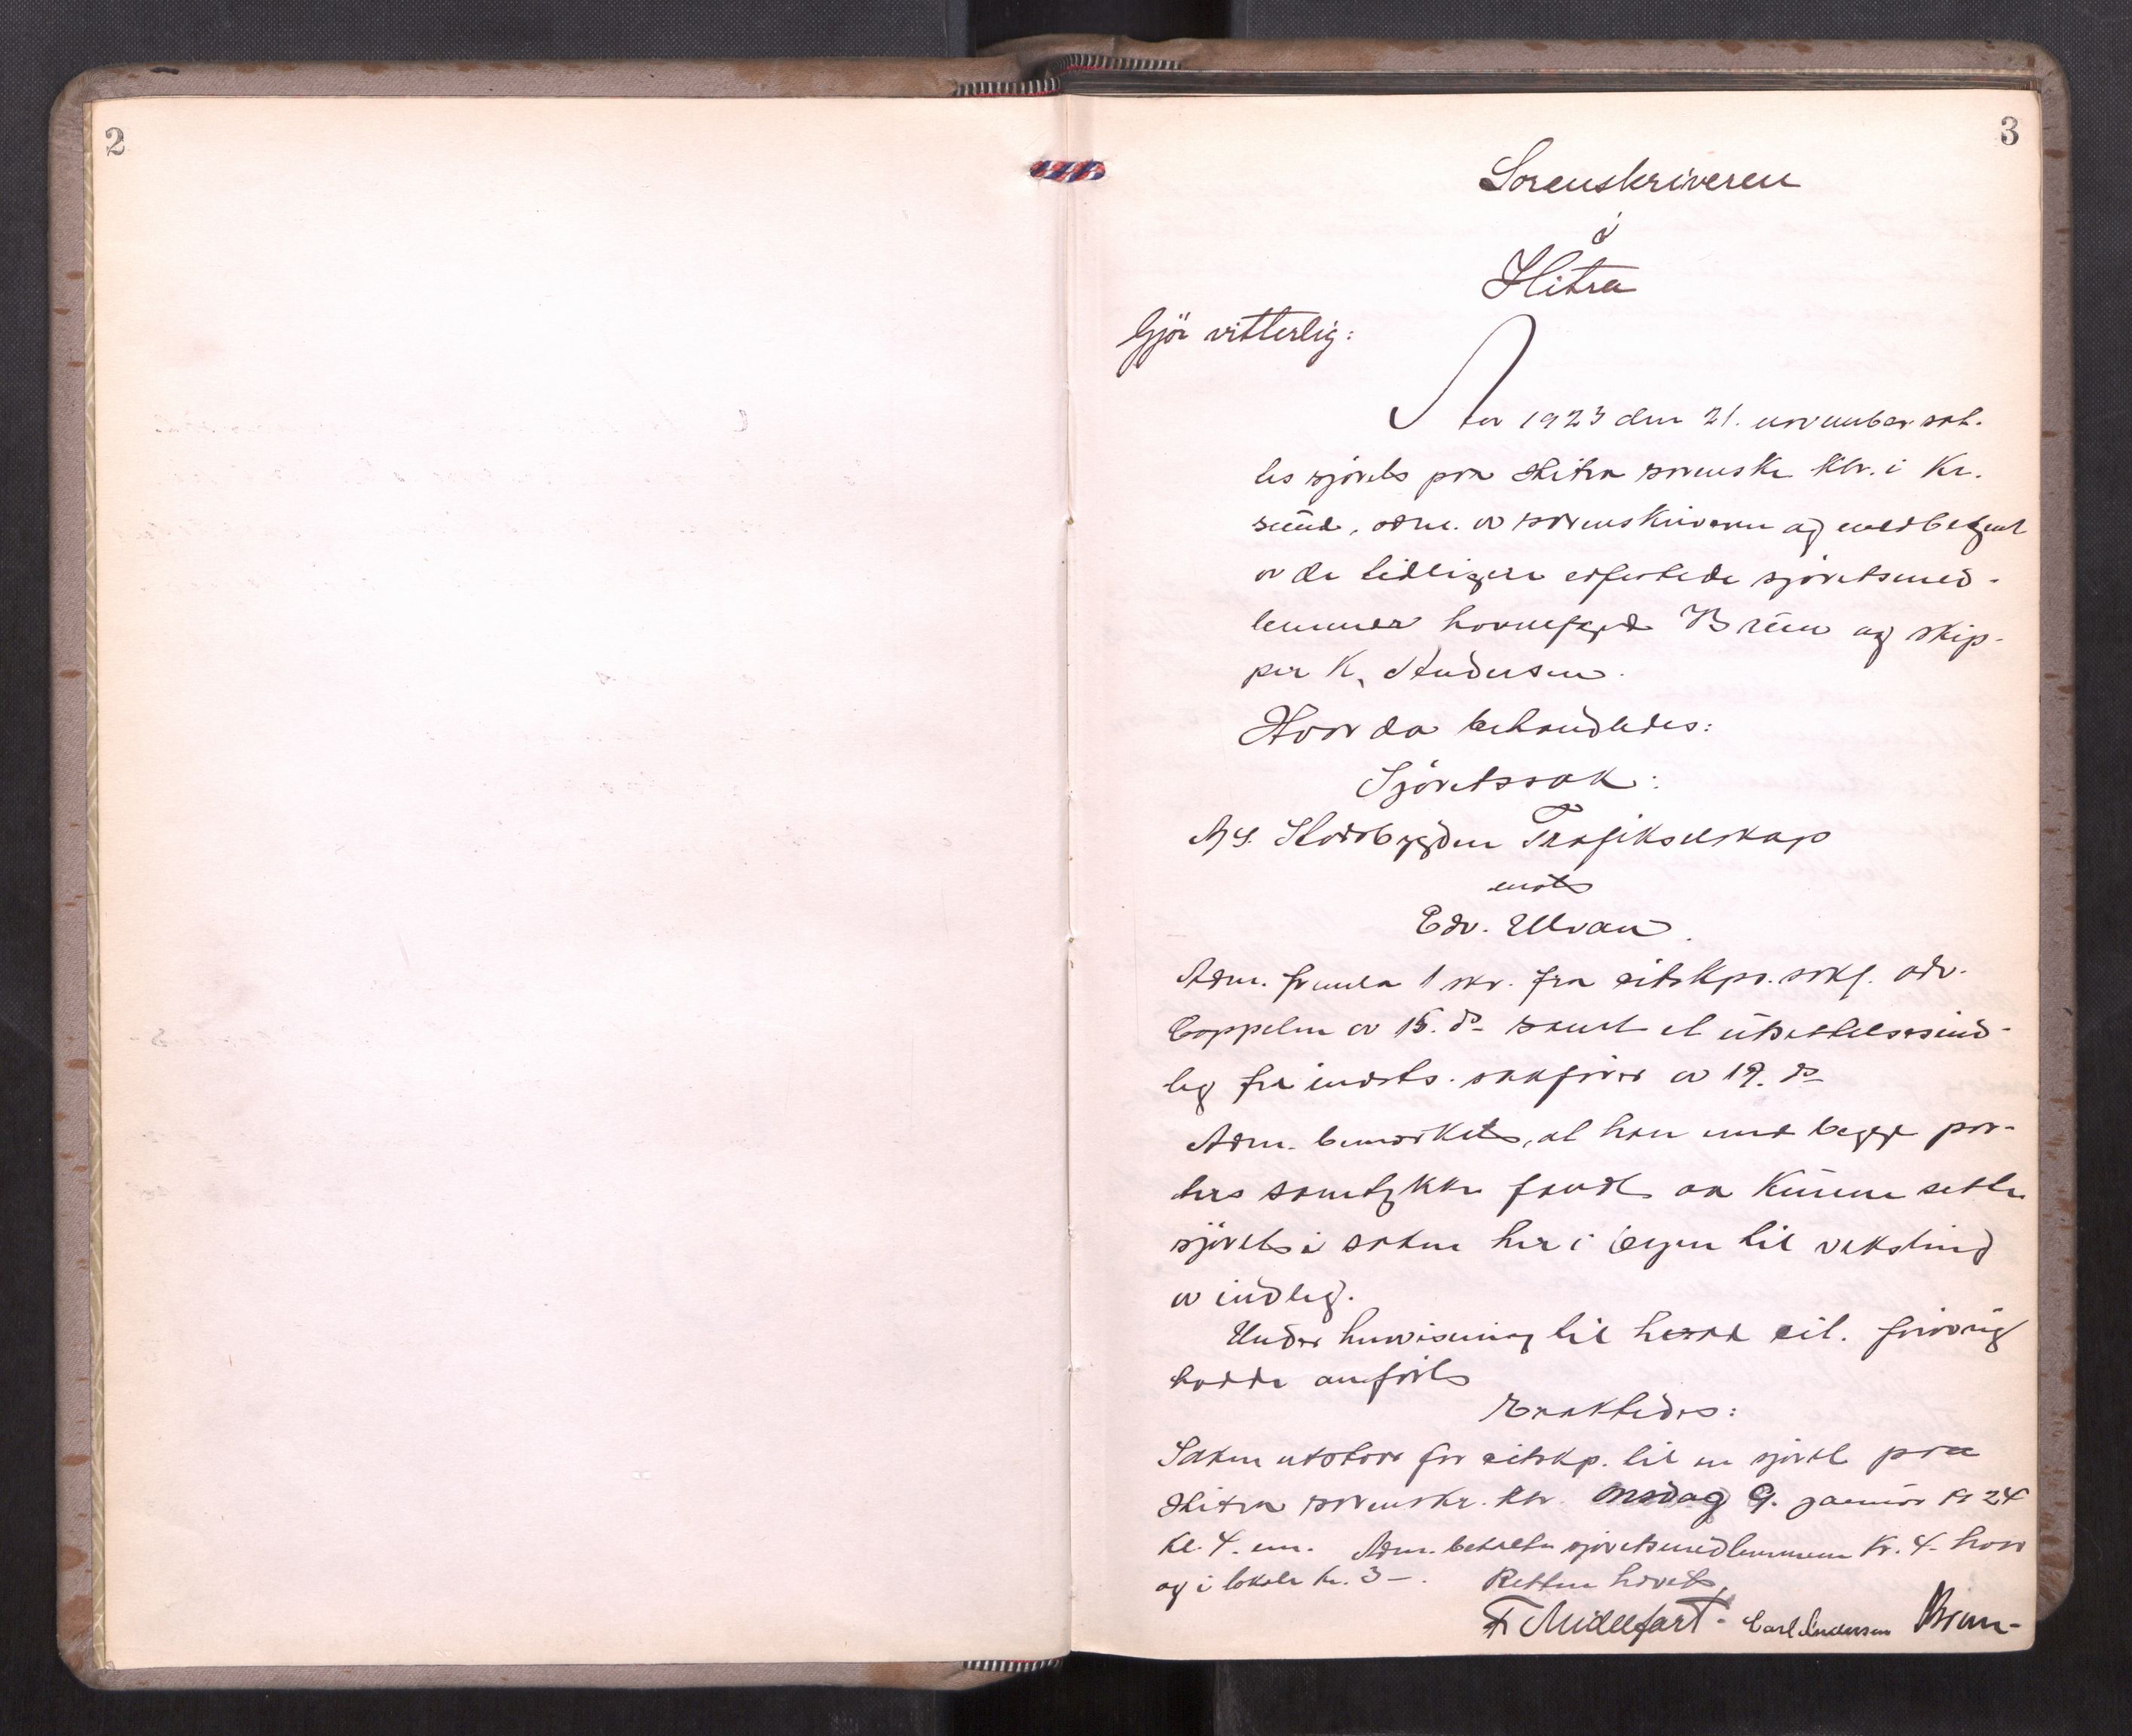 2
3
Sorenskriveren
i
Hitra
Gjör vitterlig:
Aar 1923 den 21. november sat-
tes sjörets paa Hitra sorenskr. ktr. i Kr.
sund, adm. av sorenskriveren og medbetjent
av de tidligere edfestede sjöretsmed-
lemmer havnefogd Brün og skip-
per K. Andersen.
Hvor da behandledes:
Sjöretssak:
A/S. Stadsbygden Trafikselskap
mot
Edv. Ulvan.
Adm. fremla 1 skr. fra citskps. sakf. adv.
Coppelen av 15. ds samt et utsettelsesind-
leg fra indst. sakförer av 19. ds
Adm. bemerket, at han med begge par-
ters samtykke fandt aa kunne sette
sjöret i saken her i byen til veksling
av indleg.
Under henvisning til hvad cit. forövrig
hadde anfört
Eragtedes:
Saken utstaar for citskp. til en sjöret paa
Hitra sorenskr. ktr. onsdag 9. januar 1924
kl. 4. em. Adm. betalte sjöretsmedlemmene kr. 4 hver
og i lokale kr. 3 –. Retten hævet,
F Midelfart - Carl Andersen Brun-